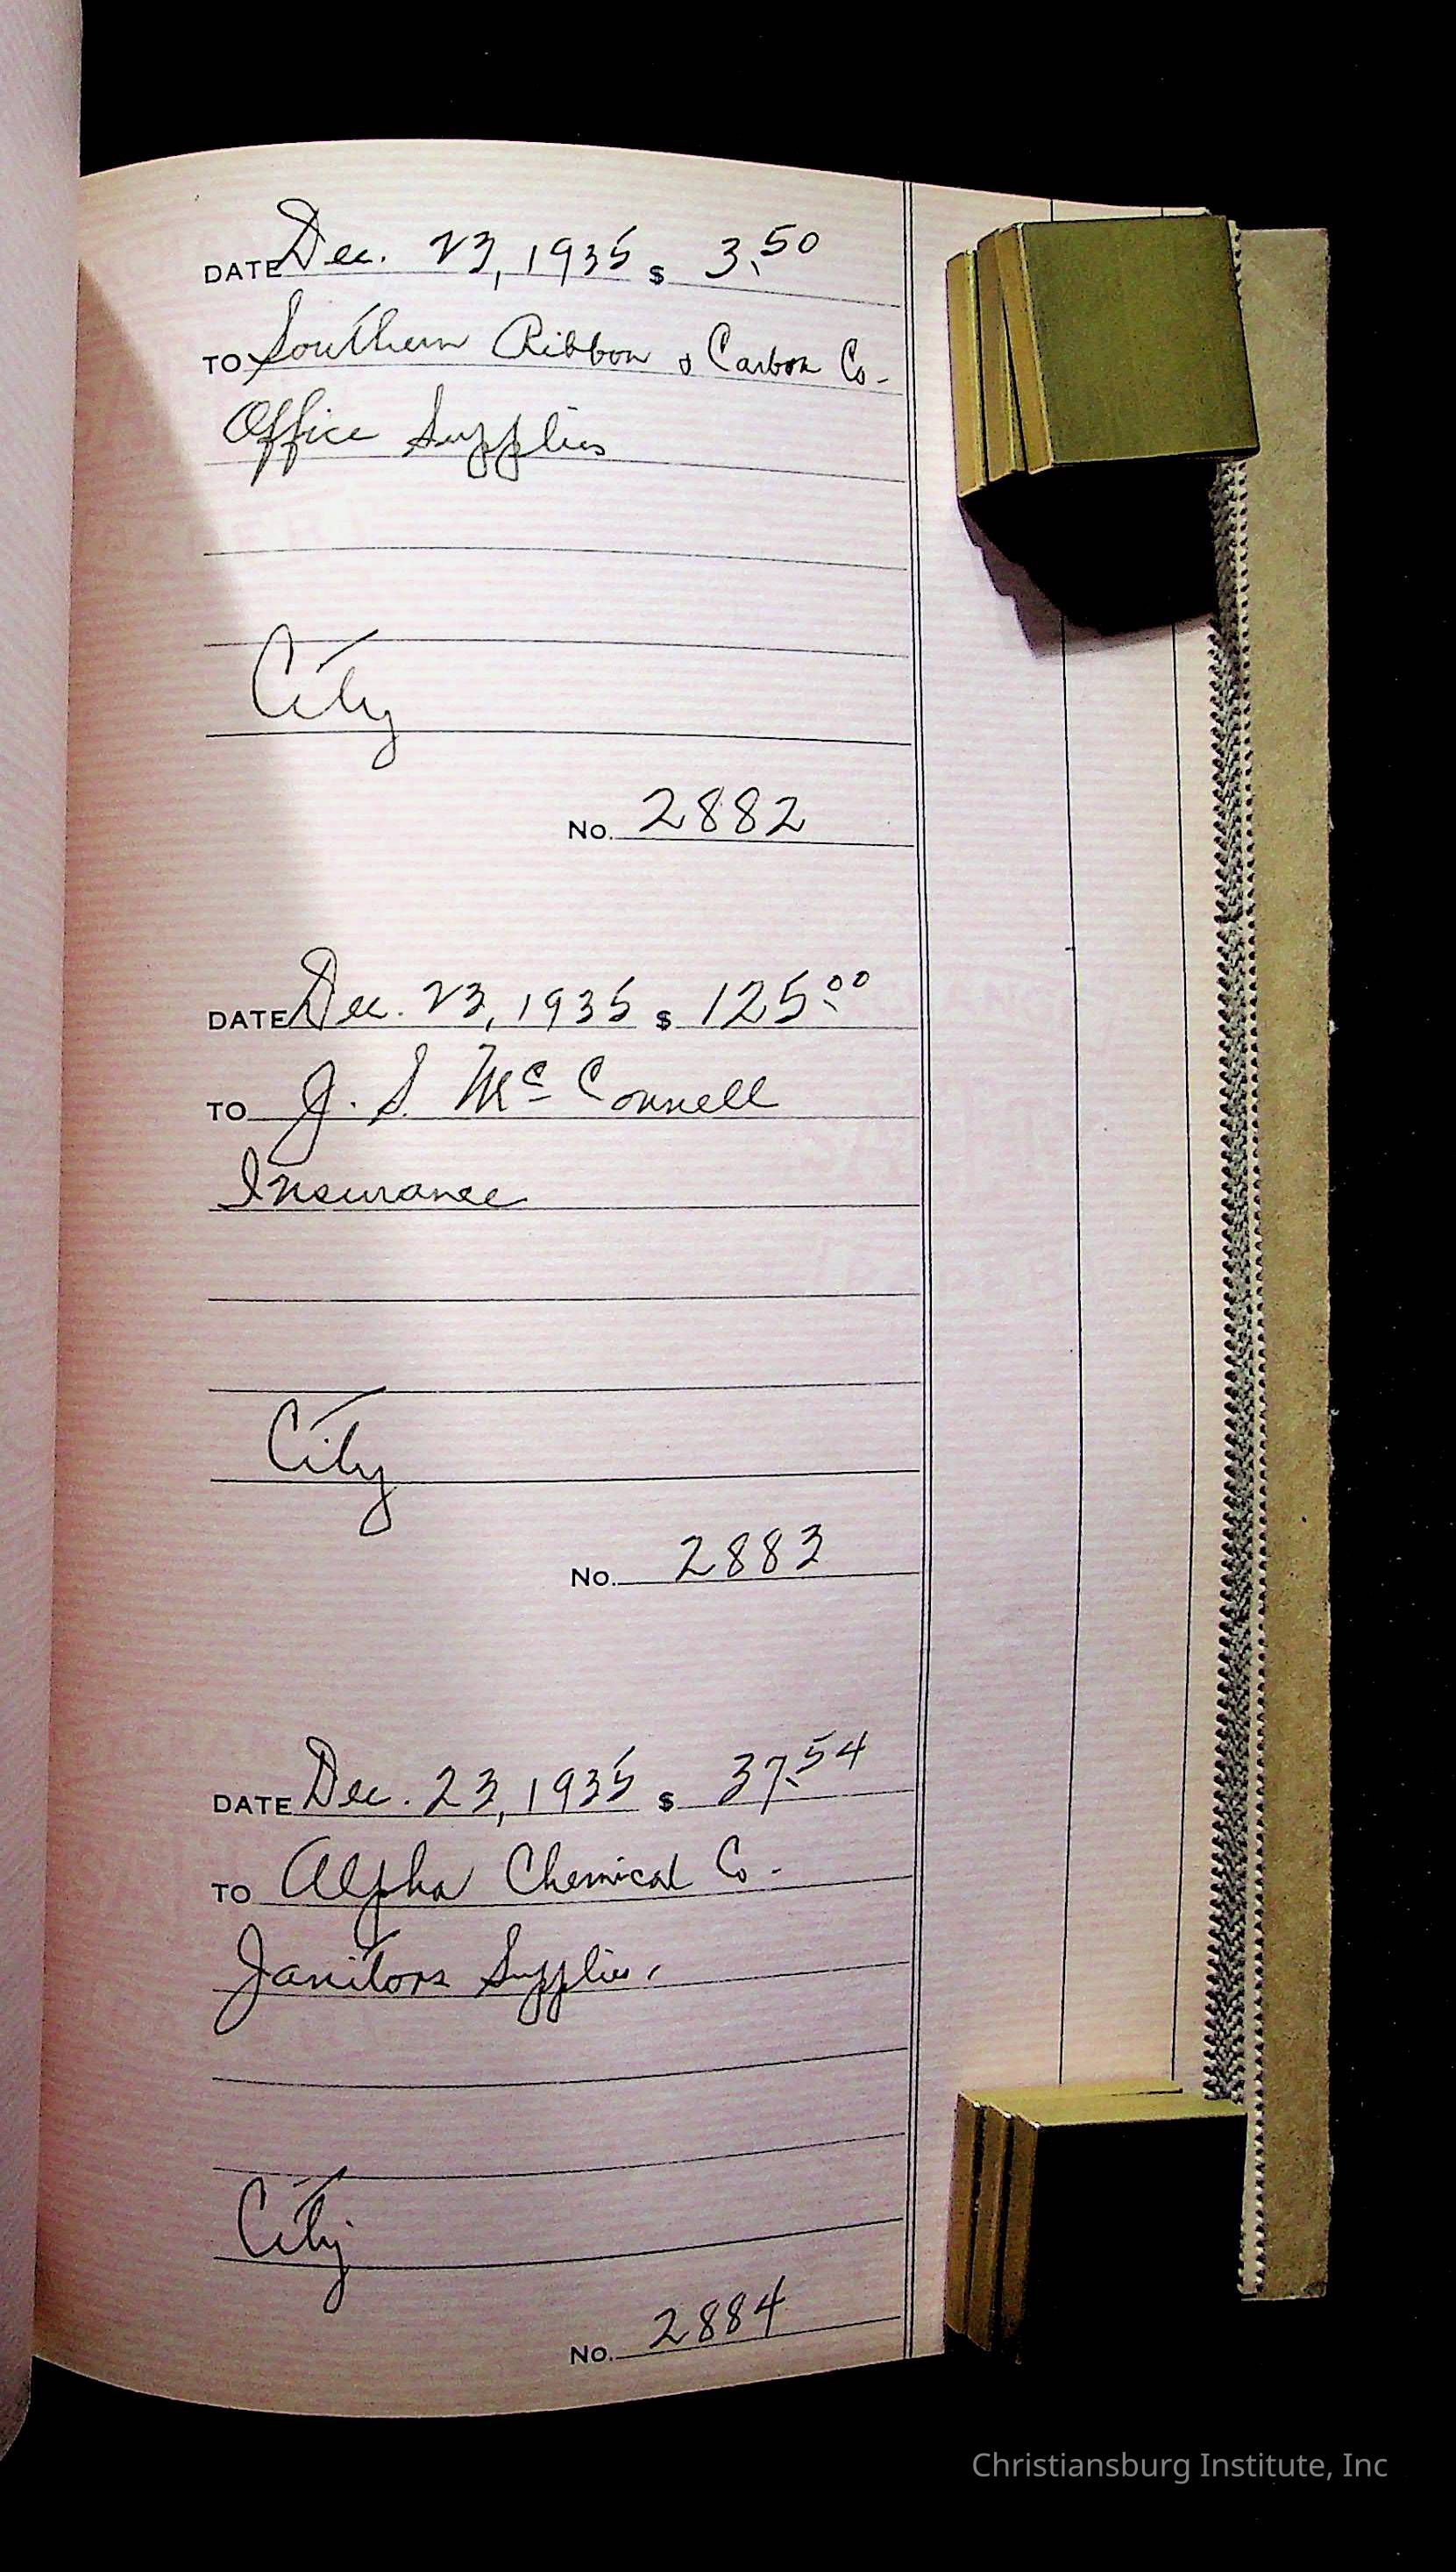 DATE Dec. 23, 1935 $ 3.50
TO Southern Ribbon & Carbon Co.
Office Supplies
City
No. 2882
DATE Dec. 23, 1935 $ 125.00
TO J. S. Mc Connell
Insurance
City
No. 2883
DATE Dec. 23, 1935 $ 37.54
TO Alpha Chemical Co.
Janitors Supplies.
City
No. 2884
Christiansburg Institute, Inc